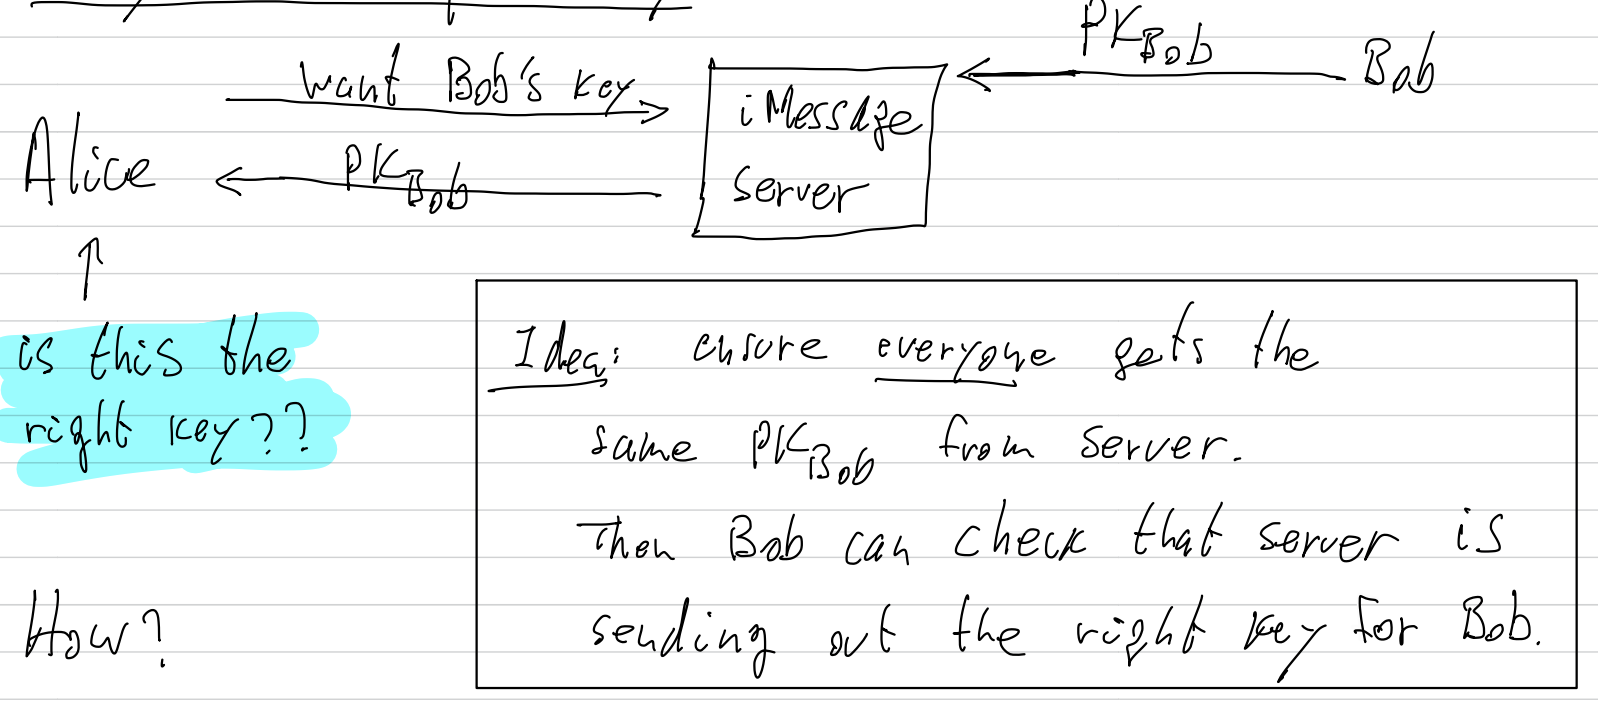 PK_Bob
Want Bob's key
Bob
iMessage
Alice
PK_Bob
server
is this the
right key??
Idea: ensure everyone gets the
same PK_Bob from server.
Then Bob can check that server is
How?
sending out the right key for Bob.